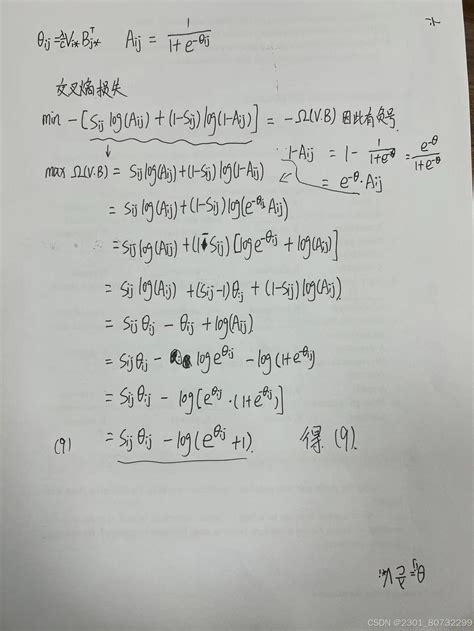 θij = λ/c Vi* Bj*^T    Aij = 1/(1+e^-θij)
交叉熵损失
min -[Sij log(Aij) + (1-Sij) log(1-Aij)] = -Ω(V.B) 因此有负号.
1-Aij = 1 - 1/(1+e^-θ) = e^-θ/(1+e^-θ)
= e^-θ · Aij
max Ω(V.B) = Sij log(Aij) + (1-Sij) log(1-Aij)
= Sij log(Aij) + (1-Sij) log(e^-θij Aij)
= Sij log(Aij) + (1-Sij) [log e^-θij + log(Aij)]
= Sij log(Aij) + (Sij-1) θij + (1-Sij) log(Aij)
= Sij θij - θij + log(Aij)
= Sij θij - log e^θij - log(1+e^-θij)
= Sij θij - log[e^θij · (1+e^-θij)]
(9) = Sij θij - log(e^θij +1).    得 (9).
CSDN @2301_80732299